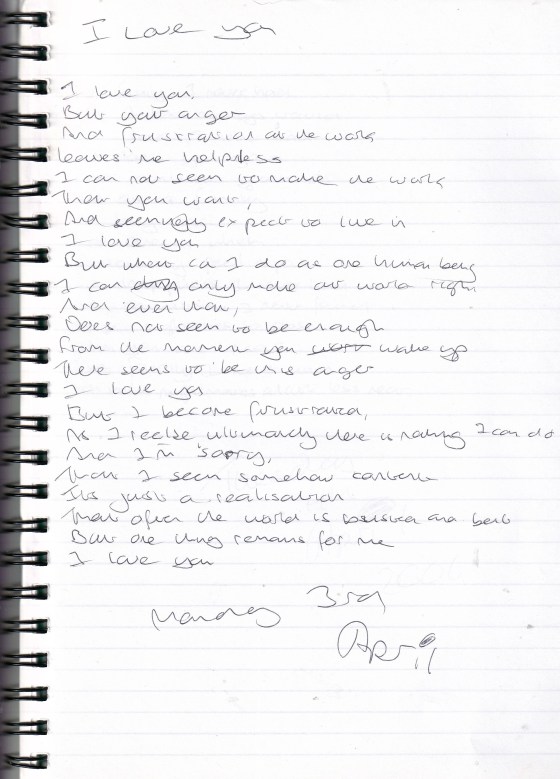 I Love you
I love you,
But your anger
And frustration at the world
leaves me helpless
I can not seem to make the world
That you want,
And seemingly expect to live in
I love you
But what can I do as one human being
I can only only make our world right
And even then,
Does not seem to be enough
From the moment you wake up
There seems to be this anger
I love you
But I become frustrated,
As I realise ultimately there is nothing I can do
And I'm sorry,
That I seem somehow content
It's just a realisation
That often the world is twisted and bent
But one thing remains for me
I love you
Monday 3rd
April